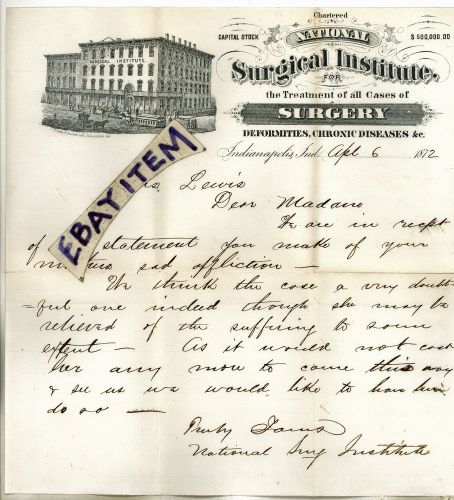 Chartered
CAPITAL STOCK NATIONAL $ 500,000.00
SURGICAL INSTITUTE
Surgical Institute,
FOR
the Treatment of all Cases of
SURGERY
DEFORMITIES, CHRONIC DISEASES &c.
Indianapolis, Ind. Apl 6 1872
EBAY ITEM
s. Lewis
Dear Madam
We are in receipt
of statement you make of your
sad affliction —
We think the case a very doubt
=ful one indeed though she may be
relieved of the suffering to some
extent — As it would not cost
her any more to come this way
& see us we would like to have her
do so —
National Surg Institute